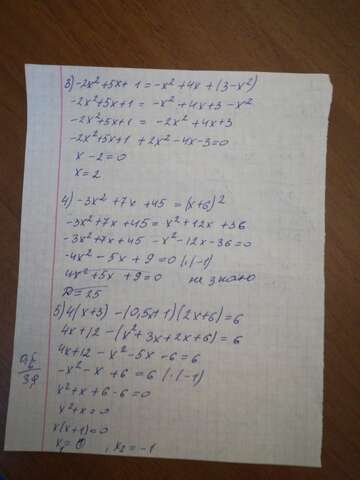 3) -2x²+5x+1=-x²+4x+(3-x²)
-2x²+5x+1 = -x²+4x+3-x²
-2x²+5x+1 = -2x²+4x+3
-2x²+5x+1+2x²-4x-3=0
x-2=0
x=2
4) -3x²+7x+45=(x+6)²
-3x²+7x+45=x²+12x+36
-3x²+7x+45-x²-12x-36=0
-4x²-5x+9=0 |·(-1)
4x²+5x+9=0 не знаю
D=25
5) 4(x+3)-(0,5x+1)(2x+6)=6
4x+12-(x²+3x+2x+6)=6
4x+12-x²-5x-6=6
-x²-x+6=6 |·(-1)
x²+x+6-6=0
x²+x=0
x(x+1)=0
x₁=0, x₂=-1